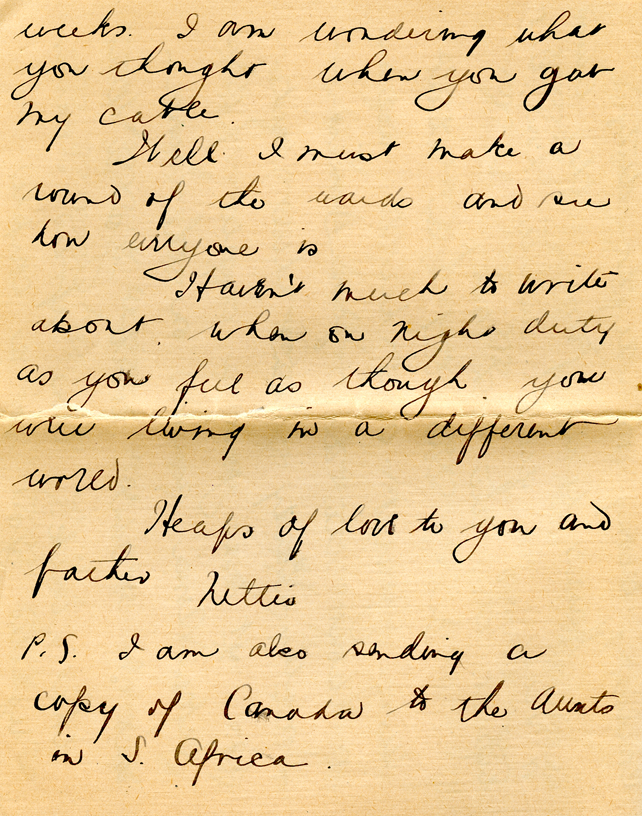 weeks. I am wondering what
you thought when you got
my cable.
Well I must make a
round of the wards and see
how everyone is
Haven't much to write
about, when on night duty
as you feel as though you
were living in a different
world.
Heaps of love to you and
father Nettie
P.S. I am also sending a
copy of Canada to the Aunts
in S. Africa.